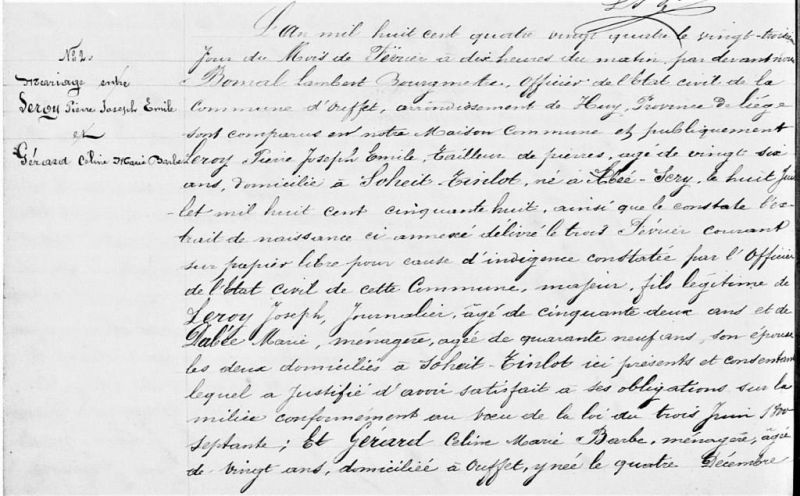 N° 2.
Mariage entre
Leroy Pierre Joseph Emile
et
Gérard Celine Marie Barbe
L'an mil huit cent quatre vingt quatre le vingt-trois
Jour du Mois de Février à dix heures du matin, par devant nous
Bomal Lambert Bourgmetre, Officier de l'Etat civil de la
Commune d'Ouffet, arrondissement de Huy, Province de Liége
sont comparus en notre Maison Commune et publiquement
Leroy Pierre Joseph Emile, Tailleur de pierres, agé de vingt six
ans, domicilié à Soheit-Tinlot, né à Abée-Scry, le huit Juil
let mil huit cent cinquante huit, ainsi que le constate l'ex
trait de naissance ci annexé délivré le trois Février courant
sur papier libre pour cause d'indigence constatée par l'Officier
de l'Etat civil de cette Commune, majeur, fils légitime de
Leroy Joseph, Journalier, âgé de cinquante deux ans et de
Dabée Marie, ménagère, agée de quarante neuf ans, son épouse
les deux domiciliés à Soheit-Tinlot ici présents et consentant
lequel a Justifié d'avoir satisfait à ses obligations sur la
milice conformément au vœu de la loi du trois Juin 1800
septante; Et Gérard Celine Marie Barbe, ménagère, agée
de vingt ans, domiciliée à Ouffet, y née le quatre Décembre